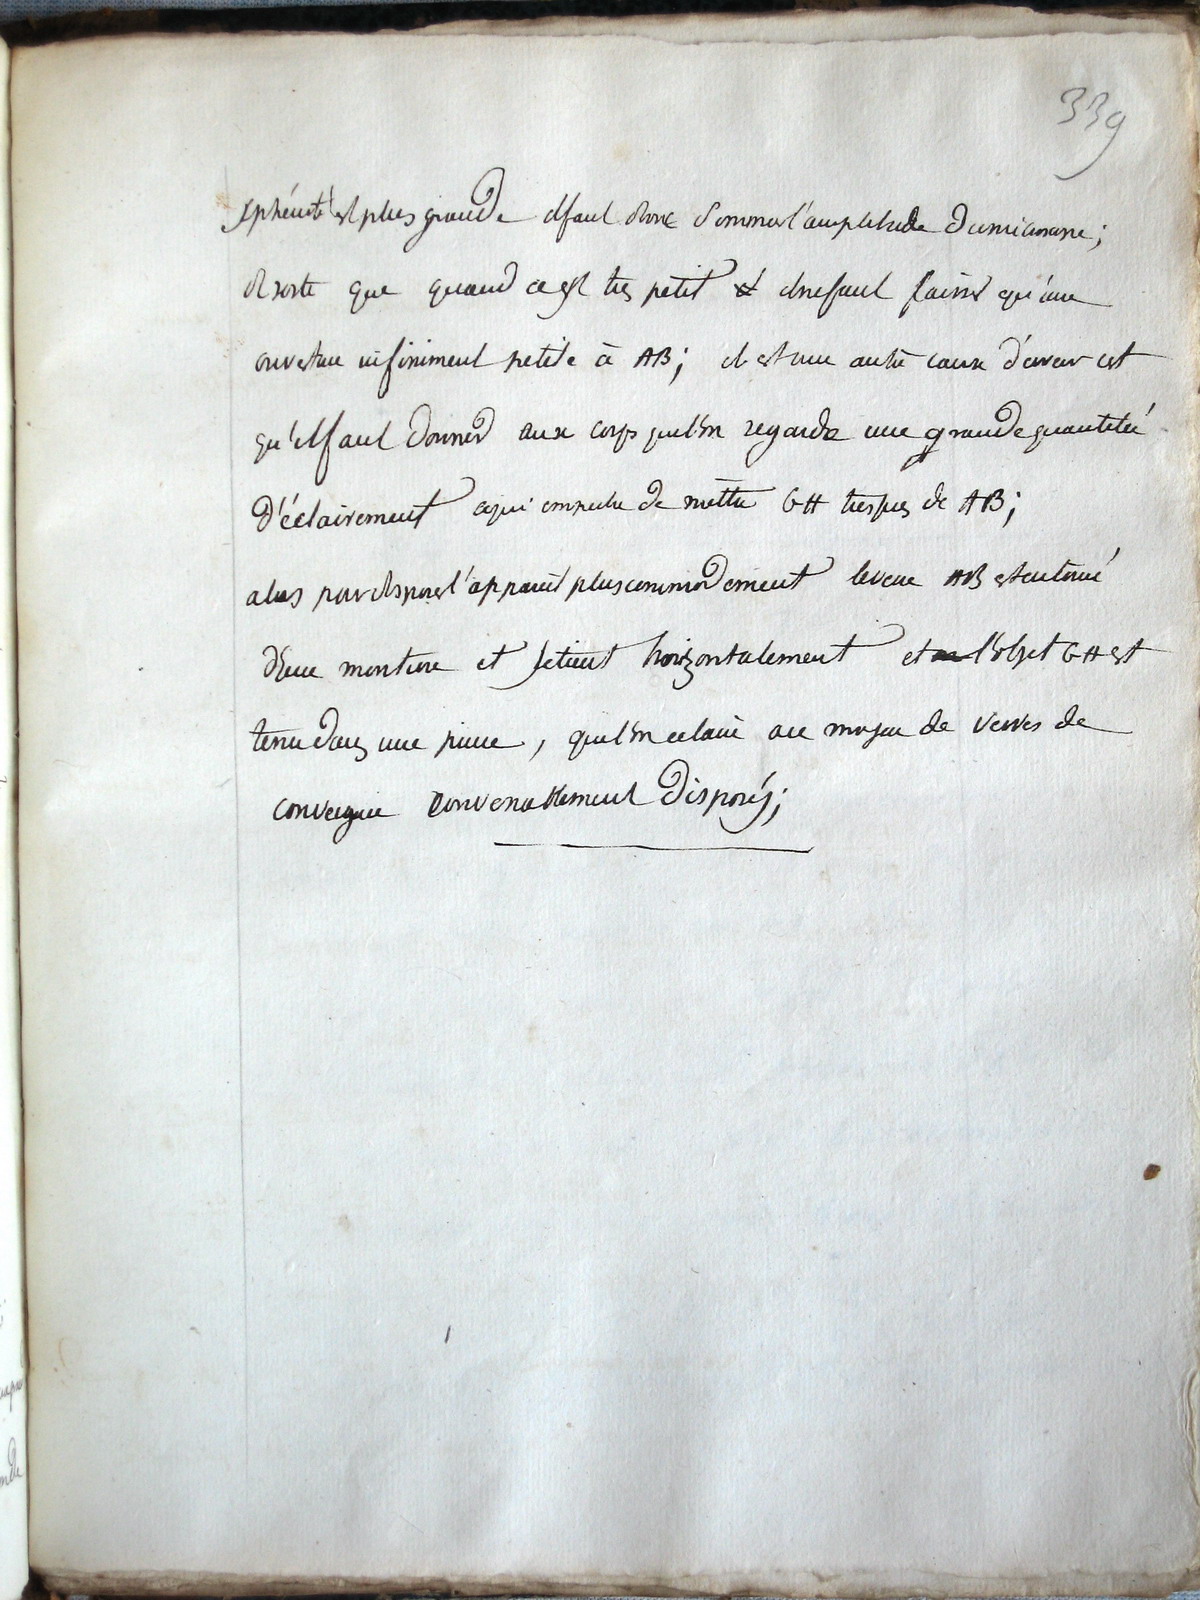 339
sphéricité est plus grande il faut donc donner l'amplitude
de sorte que quand il est très petit il ne faut qu'une
ouverture infiniment petite à AB; il est une autre cause d'erreur c'est
qu'il faut donner aux corps que l'on regarde une grande quantitée
d'éclairement ce qui empeche de mettre GH tres pres de AB;
alors pour disposer l'appareil plus commodement le verre AB est entouré
d'une monture et se tient horizontalement et l'objet GH est
tenu dans une pince, que l'on eclaire au moyen de verres de
convergence convenablement disposés;